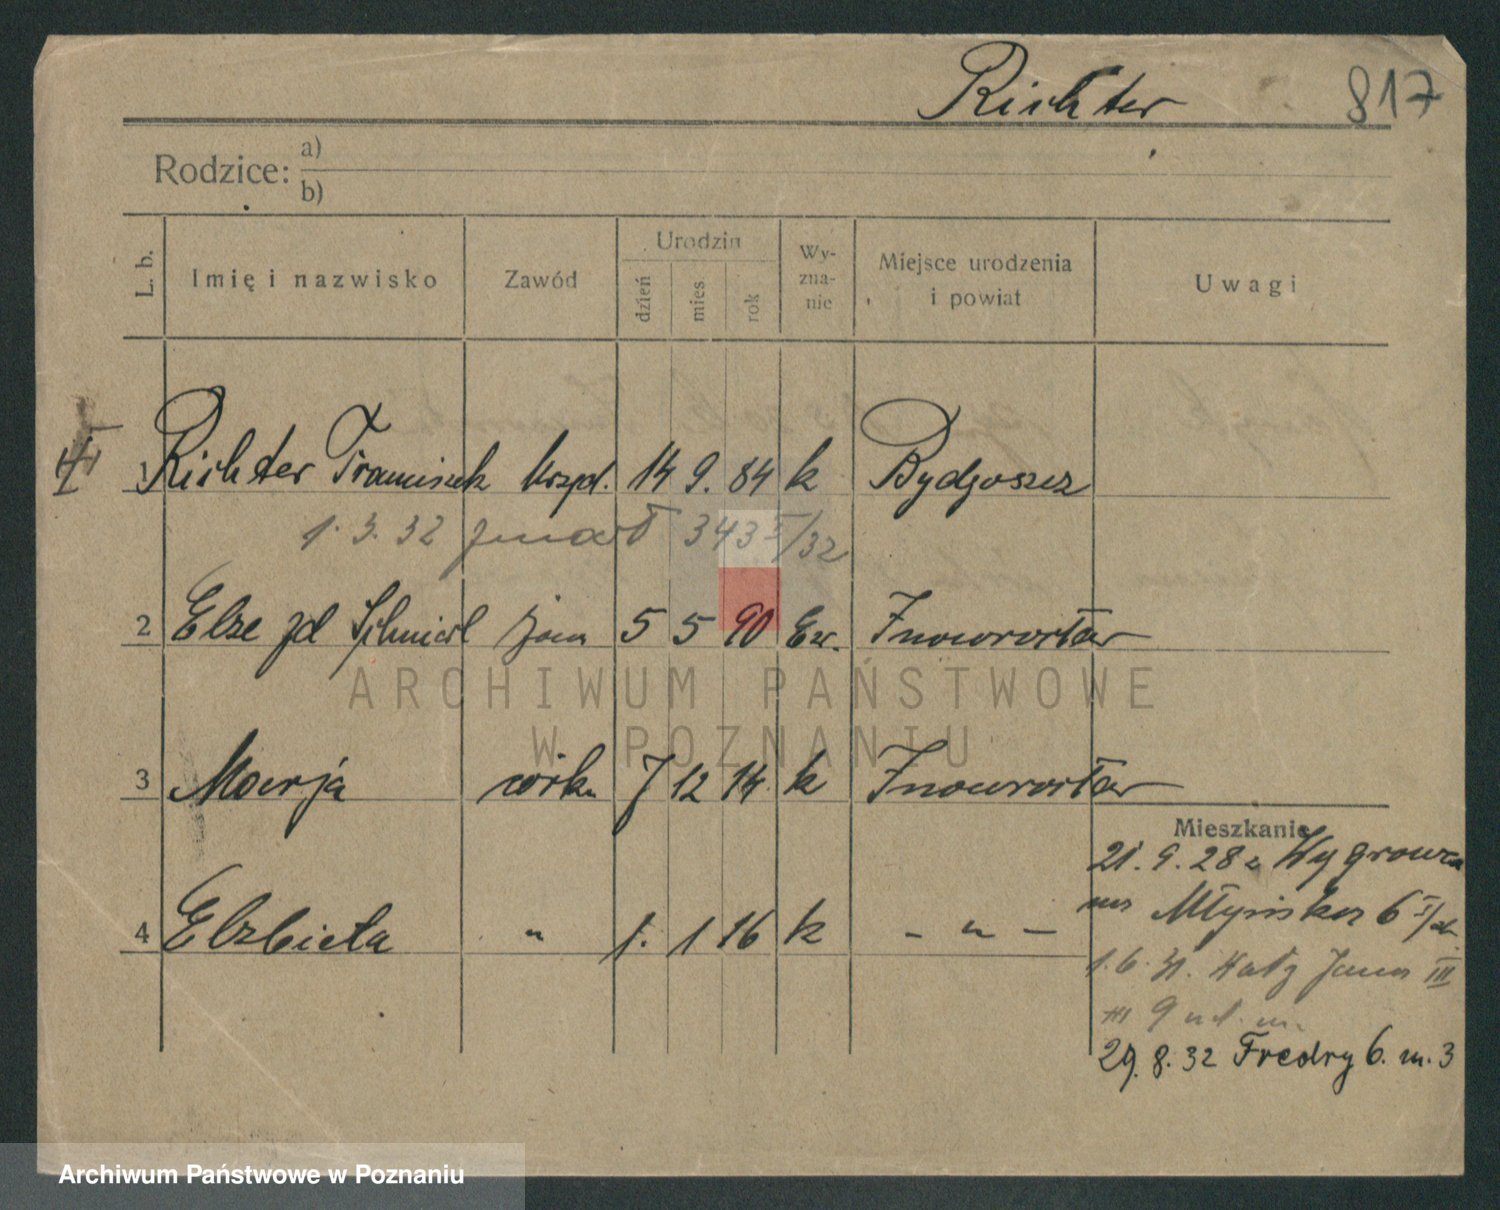 Richter 817
Rodzice: a)
b)
L. b. Imię i nazwisko Zawód Urodzin dzień mies rok Wy-zna-nie Miejsce urodzenia i powiat Uwagi
1 Richter Franciszek krzpd. 14 9. 84 k Bydgoszcz
1. 3. 32 zmarł 343 I/32
2 Elze zd Schmidt żona 5 5 90 Ew. Inowrocław
ARCHIWUM PAŃSTWOWE
W POZNANIU
3 Marja córka 7 12 14 k Inowrocław
Mieszkanie
21. 9. 28 z Wągrowca
4 Elzbieta " 1. 1 16 k - " -
Młyńska 6
1. 6. 31. Jana III
9
29. 8. 32 Fredry 6. m. 3
Archiwum Państwowe w Poznaniu